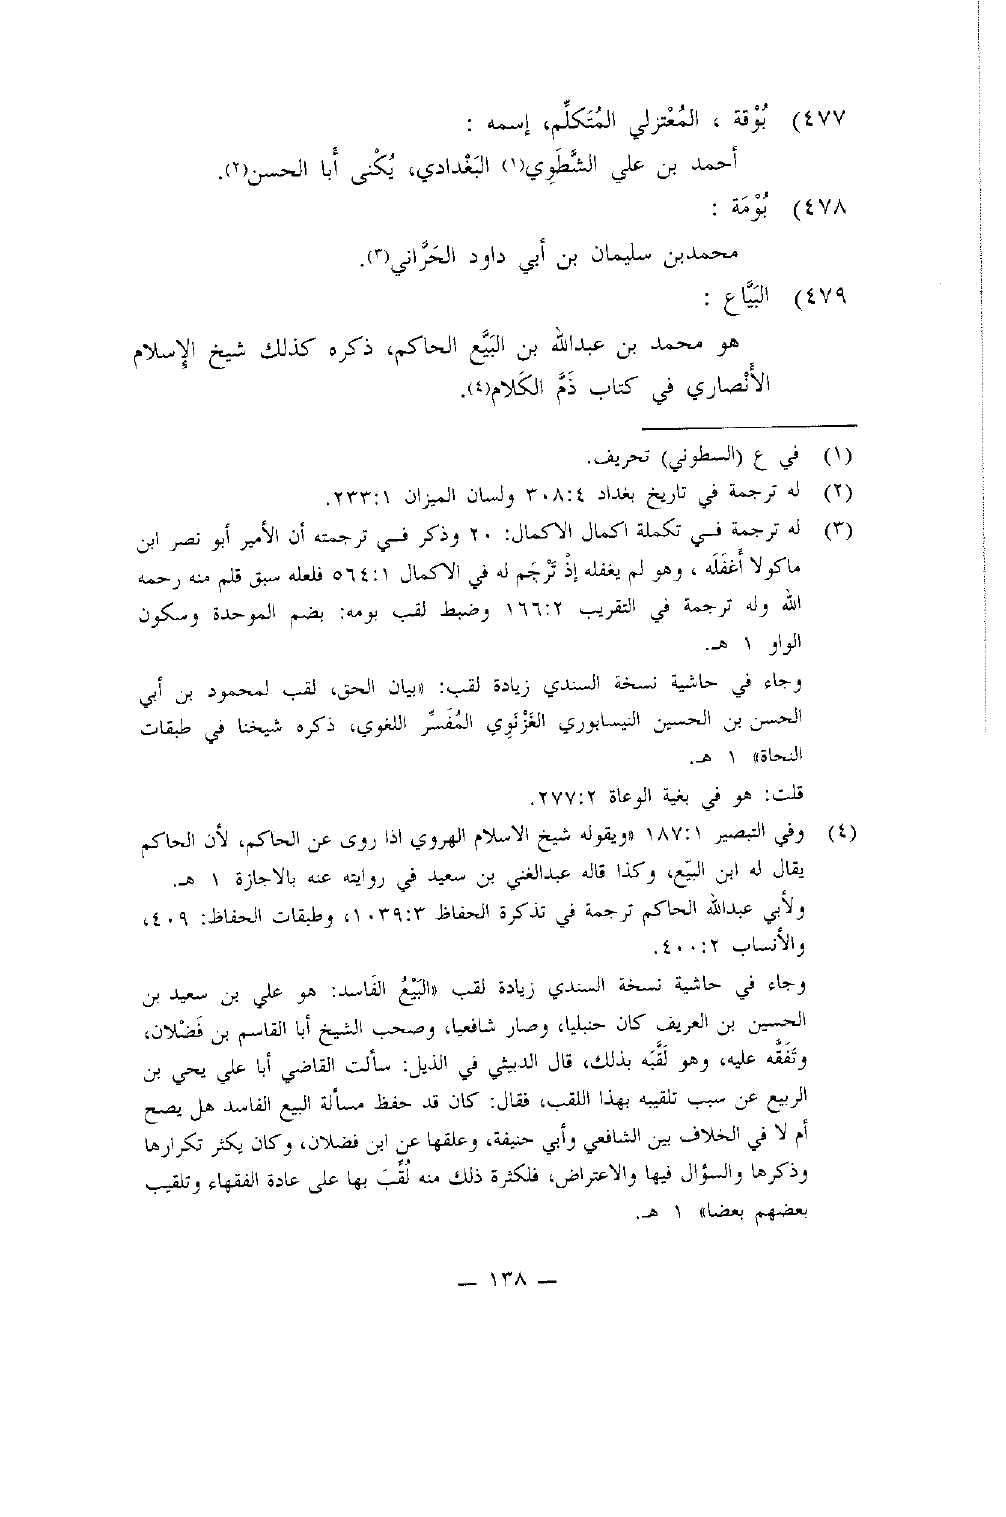 ٤٧٧) بُوْقة ، المُعْتزلي المُتَكلِّم، إسمه :
أحمد بن علي الشَّطَوِي(١) البَغْدادي، يُكْنى أَبا الحسن(٢).
٤٧٨) بُوْمَة :
محمدبن سليمان بن أبي داود الحَرَّاني(٣).
٤٧٩) البَيَّاع :
هو محمد بن عبدالله بن البَيَّع الحاكم، ذكره كذلك شيخ الإِسلام
الأَنْصاري في كتاب ذَمَّ الكَلام(٤).
(١) في ع (السطوني) تحريف.
(٢) له ترجمة في تاريخ بغداد ٣٠٨:٤ ولسان الميزان ٢٣٣:١.
(٣) له ترجمة فــي تكملة اكمال الاكمال: ٢٠ وذكر فــي ترجمته أن الأمير أبو نصر ابن
ماكولا أَغفَلَه ، وهو لم يغفله إذْ تَرْجَم له في الاكمال ٥٦٤:١ فلعله سبق قلم منه رحمه
الله وله ترجمة في التقريب ١٦٦:٢ وضبط لقب بومه: بضم الموحدة وسكون
الواو ١ هـ.
وجاء في حاشية نسخة السندي زيادة لقب: «بيان الحق، لقب لمحمود بن أبي
الحسن بن الحسين النيسابوري الغَزْنَوي المُفَسِّر اللغوي، ذكره شيخنا في طبقات
النحاة» ١ هـ.
قلت: هو في بغية الوعاة ٢٧٧:٢.
(٤) وفي التبصير ١٨٧:١ «ويقوله شيخ الاسلام الهروي اذا روى عن الحاكم، لأن الحاكم
يقال له ابن البيّع، وكذا قاله عبدالغني بن سعيد في روايته عنه بالاجازة ١ هـ.
ولأبي عبدالله الحاكم ترجمة في تذكرة الحفاظ ١٠٣٩:٣، وطبقات الحفاظ: ٤٠٩،
والأنساب ٤٠٠:٢.
وجاء في حاشية نسخة السندي زيادة لقب «البَيْعُ الفَاسد: هو علي بن سعيد بن
الحسين بن العريف كان حنبليا، وصار شافعيا، وصحب الشيخ أبا القاسم بن فَضْلان،
وتَفَقَّه عليه، وهو لَقَّبَه بذلك، قال الدبيثي في الذيل: سألت القاضي أبا علي يحي بن
الربيع عن سبب تلقيبه بهذا اللقب، فقال: كان قد حفظ مسألة البيع الفاسد هل يصح
أم لا في الخلاف بين الشافعي وأبي حنيفة، وعلقها عن ابن فضلان، وكان يكثر تكرارها
وذكرها والسؤال فيها والاعتراض، فلكثرة ذلك منه لُقِّبَ بها على عادة الفقهاء وتلقيب
بعضهم بعضا» ١ هـ.
— ١٣٨ —